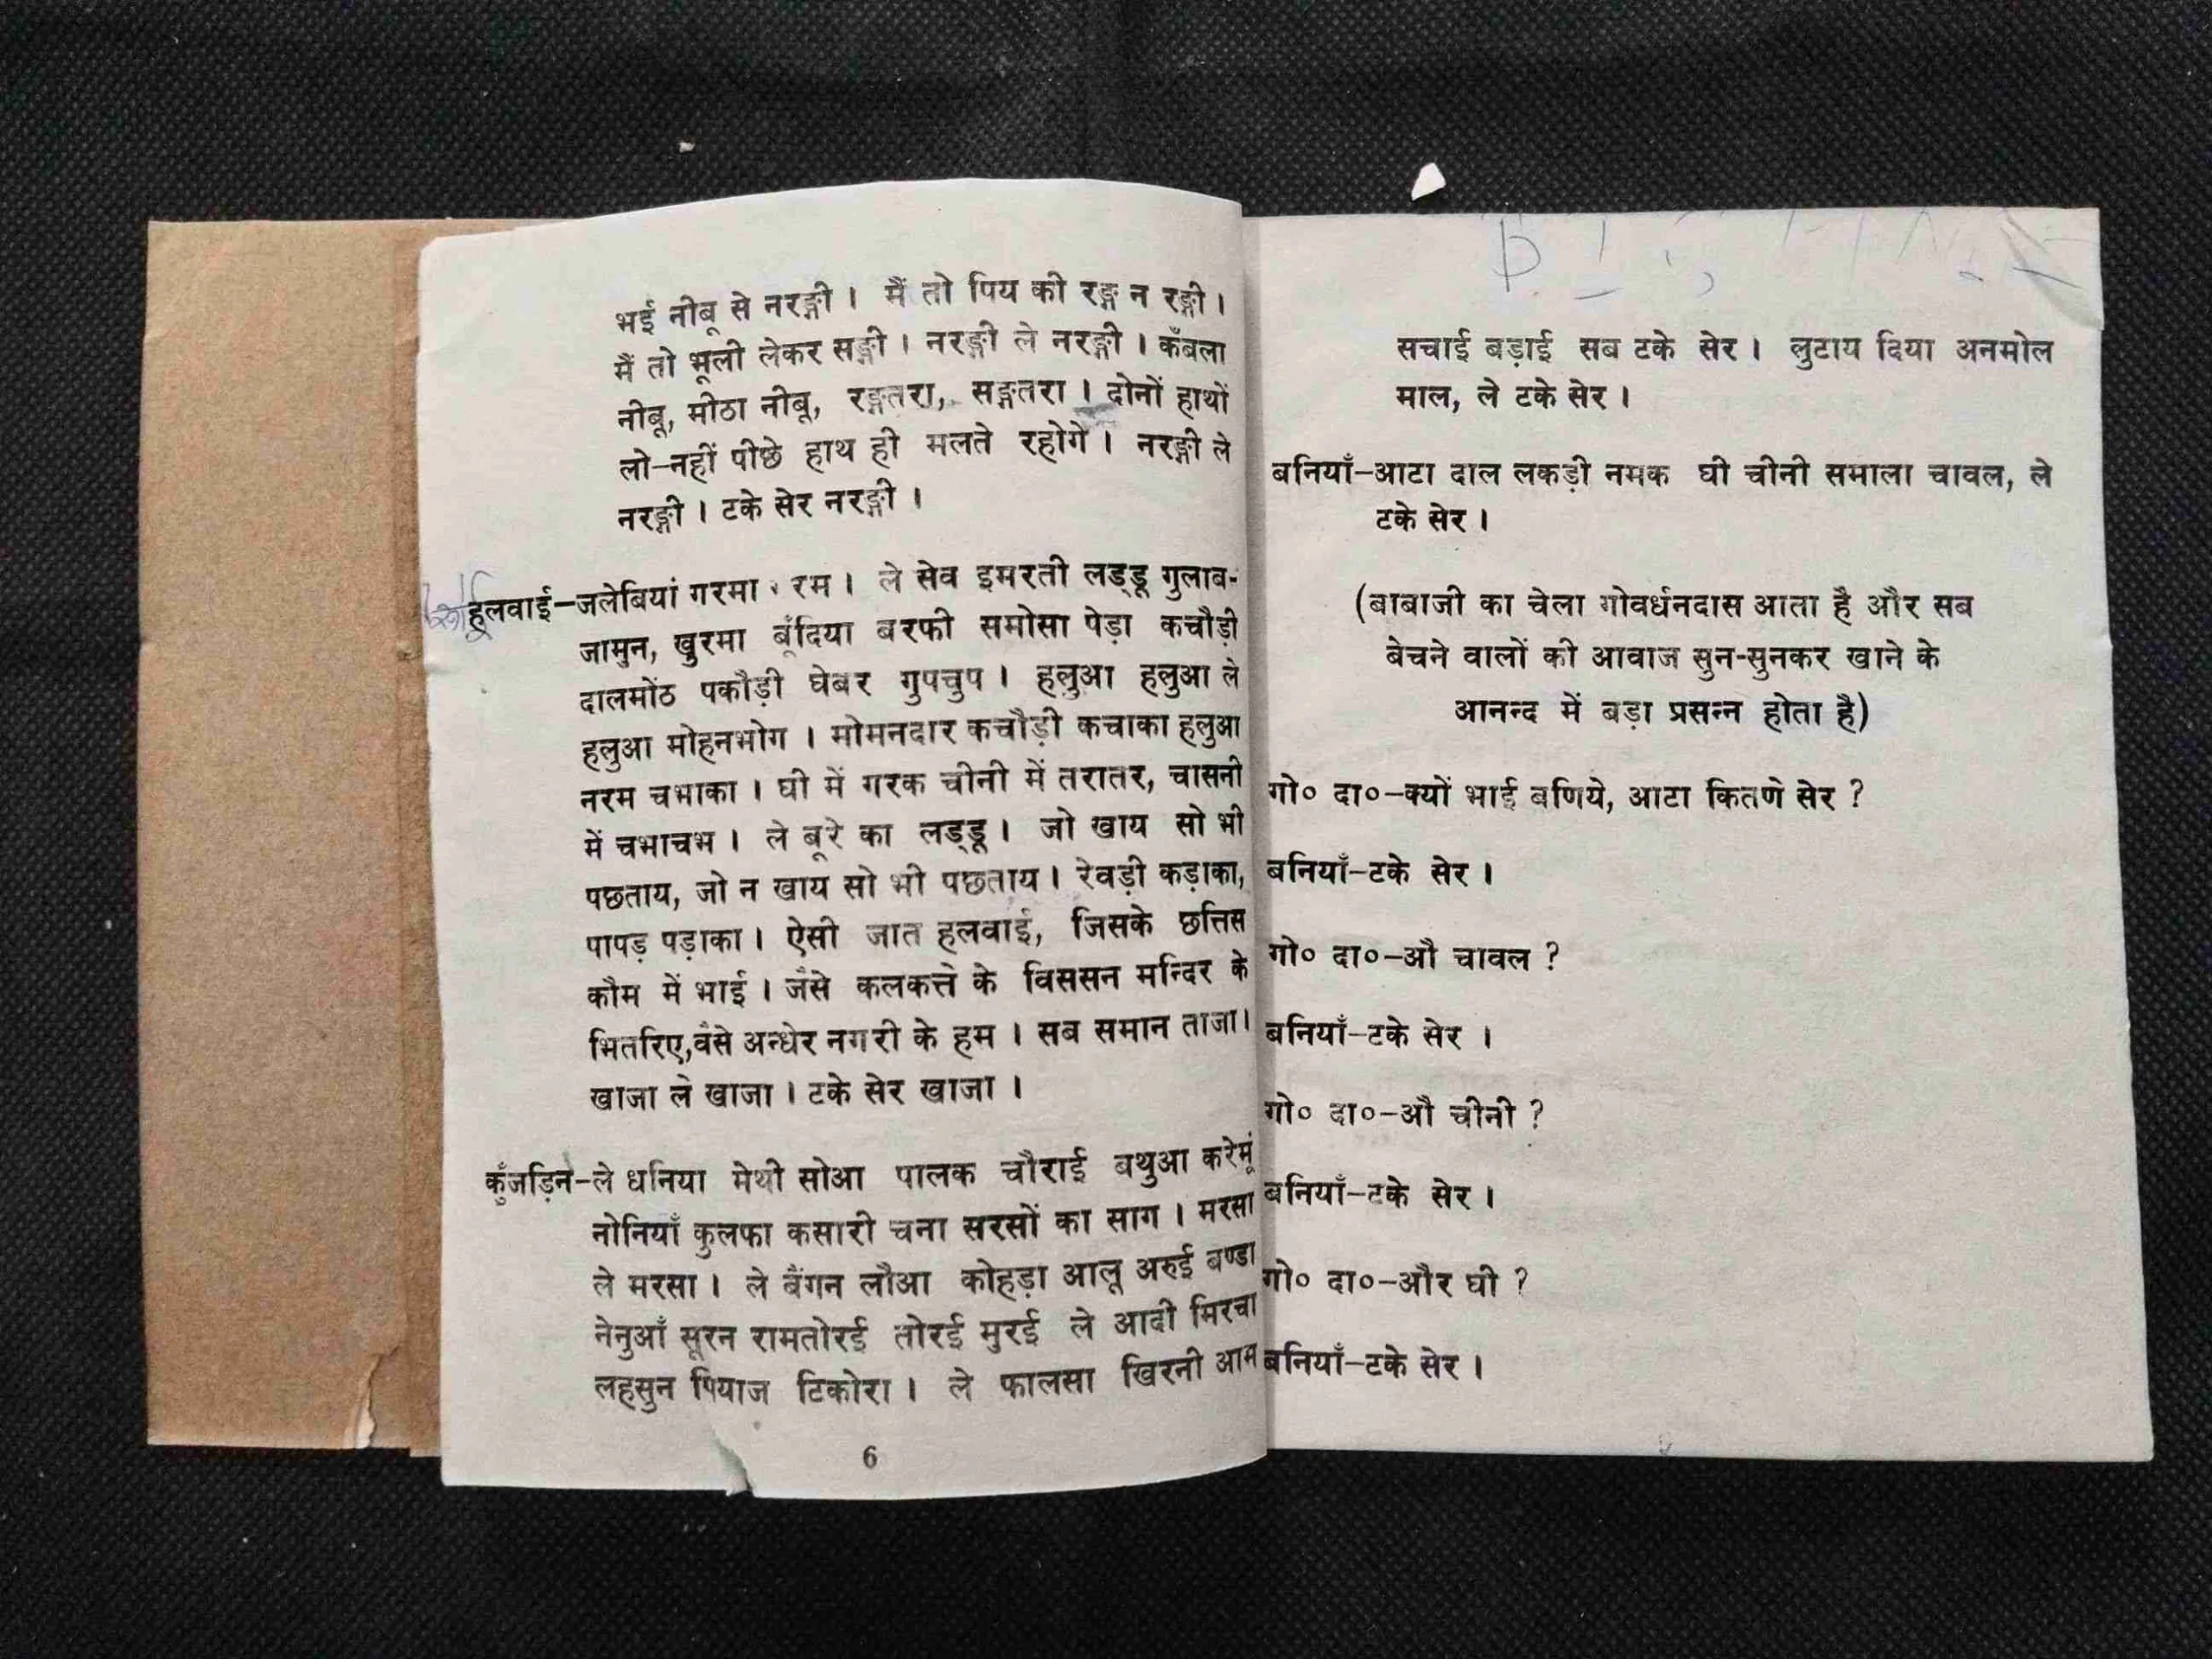 भई नीबू से नरङ्गी । मैं तो पिय की रङ्ग न रङ्गी ।
मैं तो भूली लेकर सङ्गी । नरङ्गी ले नरङ्गी । कँबला
नीबू, मीठा नीबू, रङ्गतरा, सङ्गतरा । दोनों हाथों
लो–नहीं पीछे हाथ ही मलते रहोगे । नरङ्गी ले
नरङ्गी । टके सेर नरङ्गी ।
हलवाई–जलेबियां गरमा रम । ले सेव इमरती लड्डू गुलाब-
जामुन, खुरमा बूँदिया बरफी समोसा पेड़ा कचौड़ी
दालमोंठ पकौड़ी घेबर गुपचुप । हलुआ हलुआ ले
हलुआ मोहनभोग । मोमनदार कचौड़ी कचाका हलुआ
नरम चभाका । घी में गरक चीनी में तरातर, चासनी
में चभाचभ । ले बूरे का लड्डू । जो खाय सो भी
पछताय, जो न खाय सो भी पछताय । रेवड़ी कड़ाका,
पापड़ पड़ाका । ऐसी जात हलवाई, जिसके छत्तिस
कौम में भाई । जैसे कलकत्ते के विससन मन्दिर के
भितरिए,वैसे अन्धेर नगरी के हम । सब समान ताजा ।
खाजा ले खाजा । टके सेर खाजा ।
कुँजड़िन–ले धनिया मेथी सोआ पालक चौराई बथुआ करेमूं
नोनियाँ कुलफा कसारी चना सरसों का साग । मरसा
ले मरसा । ले बैंगन लौआ कोहड़ा आलू अरुई बण्डा
नेनुआँ सूरन रामतोरई तोरई मुरई ले आदी मिरचा
लहसुन पियाज टिकोरा । ले फालसा खिरनी आम
6
सचाई बड़ाई सब टके सेर । लुटाय दिया अनमोल
माल, ले टके सेर ।
बनियाँ–आटा दाल लकड़ी नमक घी चीनी समाला चावल, ले
टके सेर ।
(बाबाजी का चेला गोवर्धनदास आता है और सब
बेचने वालों की आवाज सुन-सुनकर खाने के
आनन्द में बड़ा प्रसन्न होता है)
गो० दा०–क्यों भाई बणिये, आटा कितणे सेर ?
बनियाँ–टके सेर ।
गो० दा०–औ चावल ?
बनियाँ–टके सेर ।
गो० दा०–औ चीनी ?
बनियाँ–टके सेर ।
गो० दा०–और घी ?
बनियाँ–टके सेर ।